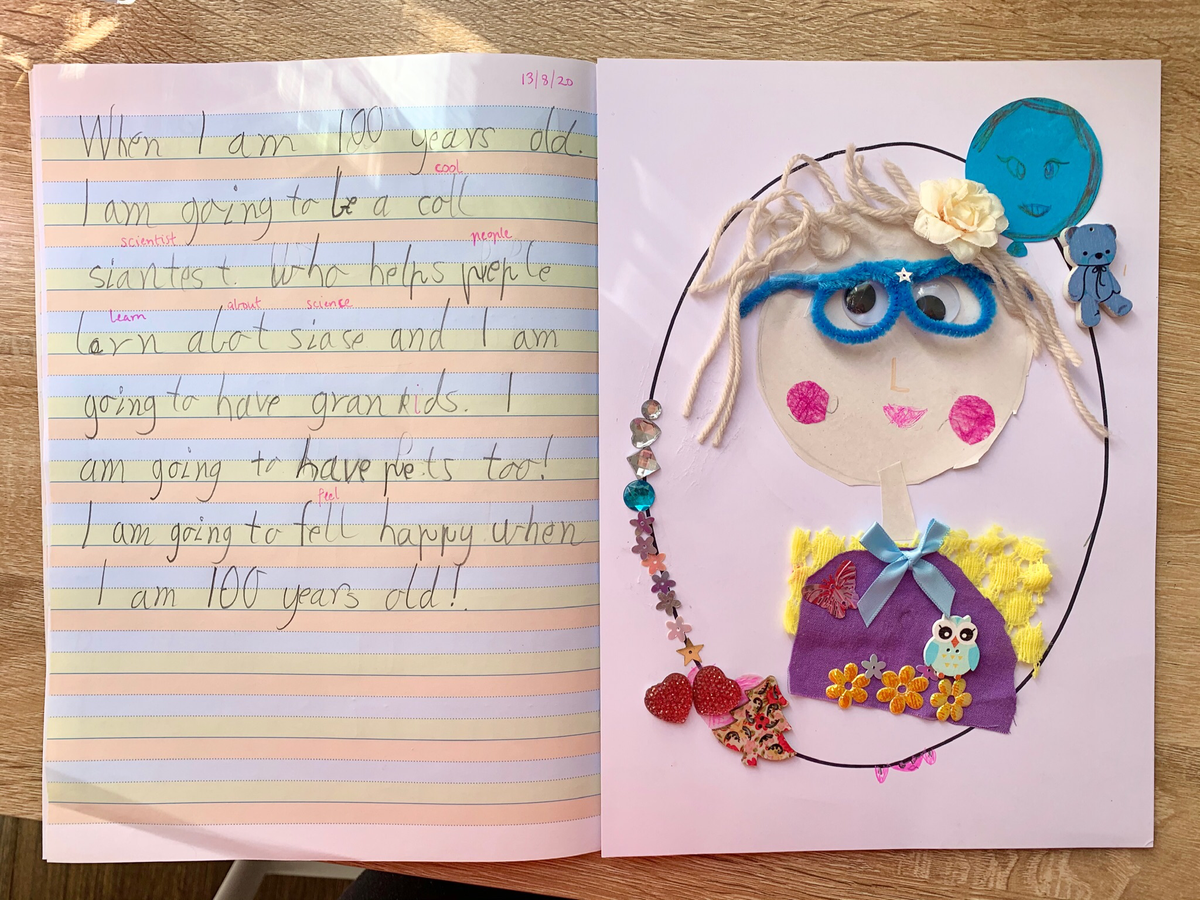 13/8/20
When I am 100 years old.
cool
I am going to be a coll
scientist people
siantest. Who helps people
learn about science
larn abot siase and I am
going to have grankids. I
am going to have pets too!
feel
I am going to fell happy when
I am 100 years old!